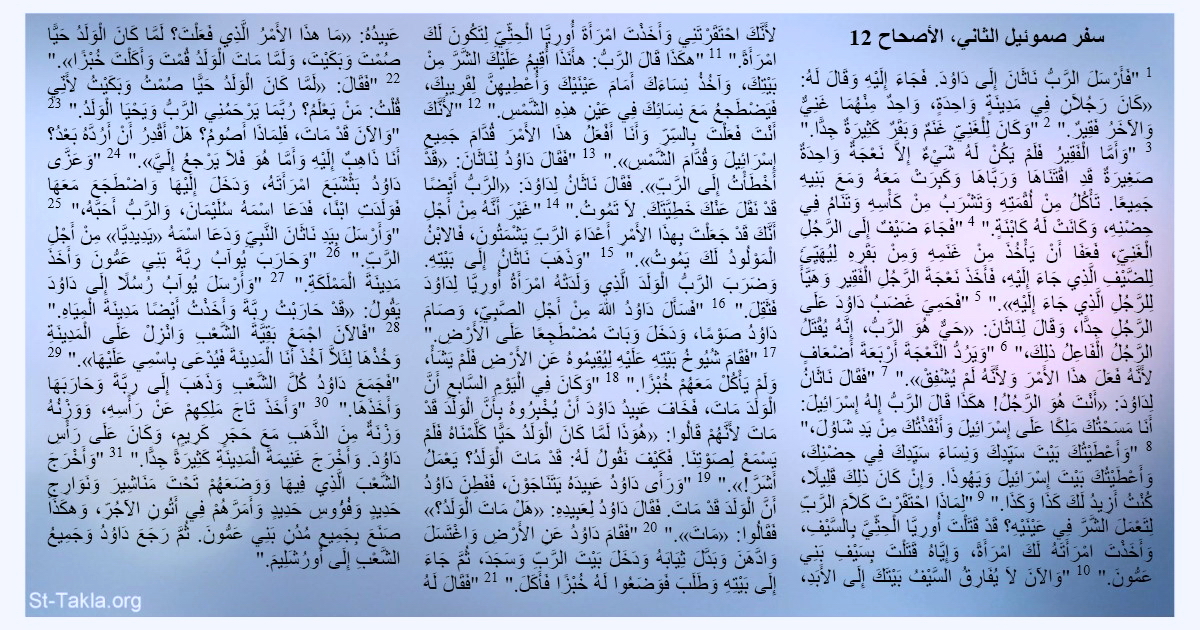 سفر صموئيل الثاني، الأصحاح 12
1 "فَأَرْسَلَ الرَّبُّ نَاثَانَ إِلَى دَاوُدَ. فَجَاءَ إِلَيْهِ وَقَالَ لَهُ:
«كَانَ رَجُلاَنِ فِي مَدِينَةٍ وَاحِدَةٍ، وَاحِدٌ مِنْهُمَا غَنِيٌّ
وَالآخَرُ فَقِيرٌ." 2 "وَكَانَ لِلْغَنِيِّ غَنَمٌ وَبَقَرٌ كَثِيرَةٌ جِدًّا."
3 "وَأَمَّا الْفَقِيرُ فَلَمْ يَكُنْ لَهُ شَيْءٌ إِلاَّ نَعْجَةٌ وَاحِدَةٌ
صَغِيرَةٌ قَدِ اقْتَنَاهَا وَرَبَّاهَا وَكَبِرَتْ مَعَهُ وَمَعَ بَنِيهِ
جَمِيعًا. تَأْكُلُ مِنْ لُقْمَتِهِ وَتَشْرَبُ مِنْ كَأْسِهِ وَتَنَامُ فِي
حِضْنِهِ، وَكَانَتْ لَهُ كَابْنَةٍ." 4 "فَجَاءَ ضَيْفٌ إِلَى الرَّجُلِ
الْغَنِيِّ، فَعَفَا أَنْ يَأْخُذَ مِنْ غَنَمِهِ وَمِنْ بَقَرِهِ لِيُهَيِّئَ
لِلضَّيْفِ الَّذِي جَاءَ إِلَيْهِ، فَأَخَذَ نَعْجَةَ الرَّجُلِ الْفَقِيرِ وَهَيَّأَ
لِلرَّجُلِ الَّذِي جَاءَ إِلَيْهِ»." 5 "فَحَمِيَ غَضَبُ دَاوُدَ عَلَى
الرَّجُلِ جِدًّا، وَقَالَ لِنَاثَانَ: «حَيٌّ هُوَ الرَّبُّ، إِنَّهُ يُقْتَلُ
الرَّجُلُ الْفَاعِلُ ذلِكَ،" 6 "وَيَرُدُّ النَّعْجَةَ أَرْبَعَةَ أَضْعَافٍ
لأَنَّهُ فَعَلَ هذَا الأَمْرَ وَلأَنَّهُ لَمْ يُشْفِقْ»." 7 "فَقَالَ نَاثَانُ
لِدَاوُدَ: «أَنْتَ هُوَ الرَّجُلُ! هكَذَا قَالَ الرَّبُّ إِلهُ إِسْرَائِيلَ:
أَنَا مَسَحْتُكَ مَلِكًا عَلَى إِسْرَائِيلَ وَأَنْقَذْتُكَ مِنْ يَدِ شَاوُلَ،"
8 "وَأَعْطَيْتُكَ بَيْتَ سَيِّدِكَ وَنِسَاءَ سَيِّدِكَ فِي حِضْنِكَ،
وَأَعْطَيْتُكَ بَيْتَ إِسْرَائِيلَ وَيَهُوذَا. وَإِنْ كَانَ ذلِكَ قَلِيلاً،
كُنْتُ أَزِيدُ لَكَ كَذَا وَكَذَا." 9 "لِمَاذَا احْتَقَرْتَ كَلاَمَ الرَّبِّ
لِتَعْمَلَ الشَّرَّ فِي عَيْنَيْهِ؟ قَدْ قَتَلْتَ أُورِيَّا الْحِثِّيَّ بِالسَّيْفِ،
وَأَخَذْتَ امْرَأَتَهُ لَكَ امْرَأَةً، وَإِيَّاهُ قَتَلْتَ بِسَيْفِ بَنِي
عَمُّونَ." 10 "وَالآنَ لاَ يُفَارِقُ السَّيْفُ بَيْتَكَ إِلَى الأَبَدِ،
لأَنَّكَ احْتَقَرْتَنِي وَأَخَذْتَ امْرَأَةَ أُورِيَّا الْحِثِّيِّ لِتَكُونَ لَكَ
امْرَأَةً." 11 "هكَذَا قَالَ الرَّبُّ: هأَنَذَا أُقِيمُ عَلَيْكَ الشَّرَّ مِنْ
بَيْتِكَ، وَآخُذُ نِسَاءَكَ أَمَامَ عَيْنَيْكَ وَأُعْطِيهِنَّ لِقَرِيبِكَ،
فَيَضْطَجِعُ مَعَ نِسَائِكَ فِي عَيْنِ هذِهِ الشَّمْسِ." 12 "لأَنَّكَ
أَنْتَ فَعَلْتَ بِالسِّرِّ وَأَنَا أَفْعَلُ هذَا الأَمْرَ قُدَّامَ جَمِيعِ
إِسْرَائِيلَ وَقُدَّامَ الشَّمْسِ»." 13 "فَقَالَ دَاوُدُ لِنَاثَانَ: «قَدْ
أَخْطَأْتُ إِلَى الرَّبِّ». فَقَالَ نَاثَانُ لِدَاوُدَ: «الرَّبُّ أَيْضًا
قَدْ نَقَلَ عَنْكَ خَطِيَّتَكَ. لاَ تَمُوتُ." 14 "غَيْرَ أَنَّهُ مِنْ أَجْلِ
أَنَّكَ قَدْ جَعَلْتَ بِهذَا الأَمْرِ أَعْدَاءَ الرَّبِّ يَشْمَتُونَ، فَالابْنُ
الْمَوْلُودُ لَكَ يَمُوتُ»." 15 "وَذَهَبَ نَاثَانُ إِلَى بَيْتِهِ.
وَضَرَبَ الرَّبُّ الْوَلَدَ الَّذِي وَلَدَتْهُ امْرَأَةُ أُورِيَّا لِدَاوُدَ
فَثَقِلَ." 16 "فَسَأَلَ دَاوُدُ اللهَ مِنْ أَجْلِ الصَّبِيِّ، وَصَامَ
دَاوُدُ صَوْمًا، وَدَخَلَ وَبَاتَ مُضْطَجِعًا عَلَى الأَرْضِ."
17 "فَقَامَ شُيُوخُ بَيْتِهِ عَلَيْهِ لِيُقِيمُوهُ عَنِ الأَرْضِ فَلَمْ يَشَأْ،
وَلَمْ يَأْكُلْ مَعَهُمْ خُبْزًا." 18 "وَكَانَ فِي الْيَوْمِ السَّابِعِ أَنَّ
الْوَلَدَ مَاتَ، فَخَافَ عَبِيدُ دَاوُدَ أَنْ يُخْبِرُوهُ بِأَنَّ الْوَلَدَ قَدْ
مَاتَ لأَنَّهُمْ قَالُوا: «هُوَذَا لَمَّا كَانَ الْوَلَدُ حَيًّا كَلَّمْنَاهُ فَلَمْ
يَسْمَعْ لِصَوْتِنَا. فَكَيْفَ نَقُولُ لَهُ: قَدْ مَاتَ الْوَلَدُ؟ يَعْمَلُ
أَشَرَّ!»." 19 "وَرَأَى دَاوُدُ عَبِيدَهُ يَتَنَاجَوْنَ، فَفَطِنَ دَاوُدُ
أَنَّ الْوَلَدَ قَدْ مَاتَ. فَقَالَ دَاوُدُ لِعَبِيدِهِ: «هَلْ مَاتَ الْوَلَدُ؟»
فَقَالُوا: «مَاتَ»." 20 "فَقَامَ دَاوُدُ عَنِ الأَرْضِ وَاغْتَسَلَ
وَادَّهَنَ وَبَدَّلَ ثِيَابَهُ وَدَخَلَ بَيْتَ الرَّبِّ وَسَجَدَ، ثُمَّ جَاءَ
إِلَى بَيْتِهِ وَطَلَبَ فَوَضَعُوا لَهُ خُبْزًا فَأَكَلَ." 21 "فَقَالَ لَهُ
عَبِيدُهُ: «مَا هذَا الأَمْرُ الَّذِي فَعَلْتَ؟ لَمَّا كَانَ الْوَلَدُ حَيًّا
صُمْتَ وَبَكَيْتَ، وَلَمَّا مَاتَ الْوَلَدُ قُمْتَ وَأَكَلْتَ خُبْزًا»."
22 "فَقَالَ: «لَمَّا كَانَ الْوَلَدُ حَيًّا صُمْتُ وَبَكَيْتُ لأَنِّي
قُلْتُ: مَنْ يَعْلَمُ؟ رُبَّمَا يَرْحَمُنِي الرَّبُّ وَيَحْيَا الْوَلَدُ." 23
"وَالآنَ قَدْ مَاتَ، فَلِمَاذَا أَصُومُ؟ هَلْ أَقْدِرُ أَنْ أَرُدَّهُ بَعْدُ؟
أَنَا ذَاهِبٌ إِلَيْهِ وَأَمَّا هُوَ فَلاَ يَرْجعُ إِلَيَّ»." 24 "وَعَزَّى
دَاوُدُ بَثْشَبَعَ امْرَأَتَهُ، وَدَخَلَ إِلَيْهَا وَاضْطَجَعَ مَعَهَا
فَوَلَدَتِ ابْنًا، فَدَعَا اسْمَهُ سُلَيْمَانَ، وَالرَّبُّ أَحَبَّهُ،" 25
"وَأَرْسَلَ بِيَدِ نَاثَانَ النَّبِيِّ وَدَعَا اسْمَهُ «يَدِيدِيَّا» مِنْ أَجْلِ
الرَّبِّ." 26 "وَحَارَبَ يُوآبُ رِبَّةَ بَنِي عَمُّونَ وَأَخَذَ
مَدِينَةَ الْمَمْلَكَةِ." 27 "وَأَرْسَلَ يُوآبُ رُسُلاً إِلَى دَاوُدَ
يَقُولُ: «قَدْ حَارَبْتُ رِبَّةَ وَأَخَذْتُ أَيْضًا مَدِينَةَ الْمِيَاهِ."
28 "فَالآنَ اجْمَعْ بَقِيَّةَ الشَّعْبِ وَانْزِلْ عَلَى الْمَدِينَةِ
وَخُذْهَا لِئَلاَّ آخُذَ أَنَا الْمَدِينَةَ فَيُدْعَى بِاسْمِي عَلَيْهَا»." 29
"فَجَمَعَ دَاوُدُ كُلَّ الشَّعْبِ وَذَهَبَ إِلَى رِبَّةَ وَحَارَبَهَا
وَأَخَذَهَا." 30 "وَأَخَذَ تَاجَ مَلِكِهِمْ عَنْ رَأْسِهِ، وَوَزْنُهُ
وَزْنَةٌ مِنَ الذَّهَبِ مَعَ حَجَرٍ كَرِيمٍ، وَكَانَ عَلَى رَأْسِ
دَاوُدَ. وَأَخْرَجَ غَنِيمَةَ الْمَدِينَةِ كَثِيرَةً جِدًّا." 31 "وَأَخْرَجَ
الشَّعْبَ الَّذِي فِيهَا وَوَضَعَهُمْ تَحْتَ مَنَاشِيرَ وَنَوَارِجِ
حَدِيدٍ وَفُؤُوسِ حَدِيدٍ وَأَمَرَّهُمْ فِي أَتُونِ الآجُرِّ، وَهكَذَا
صَنَعَ بِجَمِيعِ مُدُنِ بَنِي عَمُّونَ. ثُمَّ رَجَعَ دَاوُدُ وَجَمِيعُ
الشَّعْبِ إِلَى أُورُشَلِيمَ."
St-Takla.org